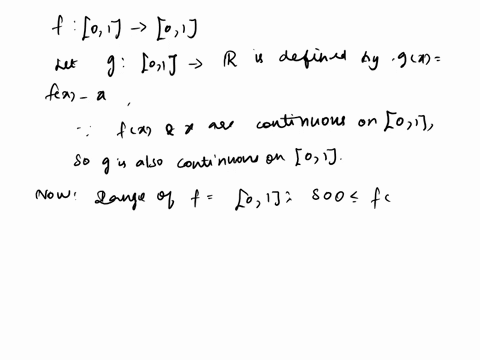 f : [0,1] → [0,1]
Let g : [0,1] → R is defined by g(x) =
f(x) - x ,
∵ f(x) & x are continuous on [0,1],
so g is also continuous on [0,1].
Now: Range of f = [0,1]; so 0 ≤ f(